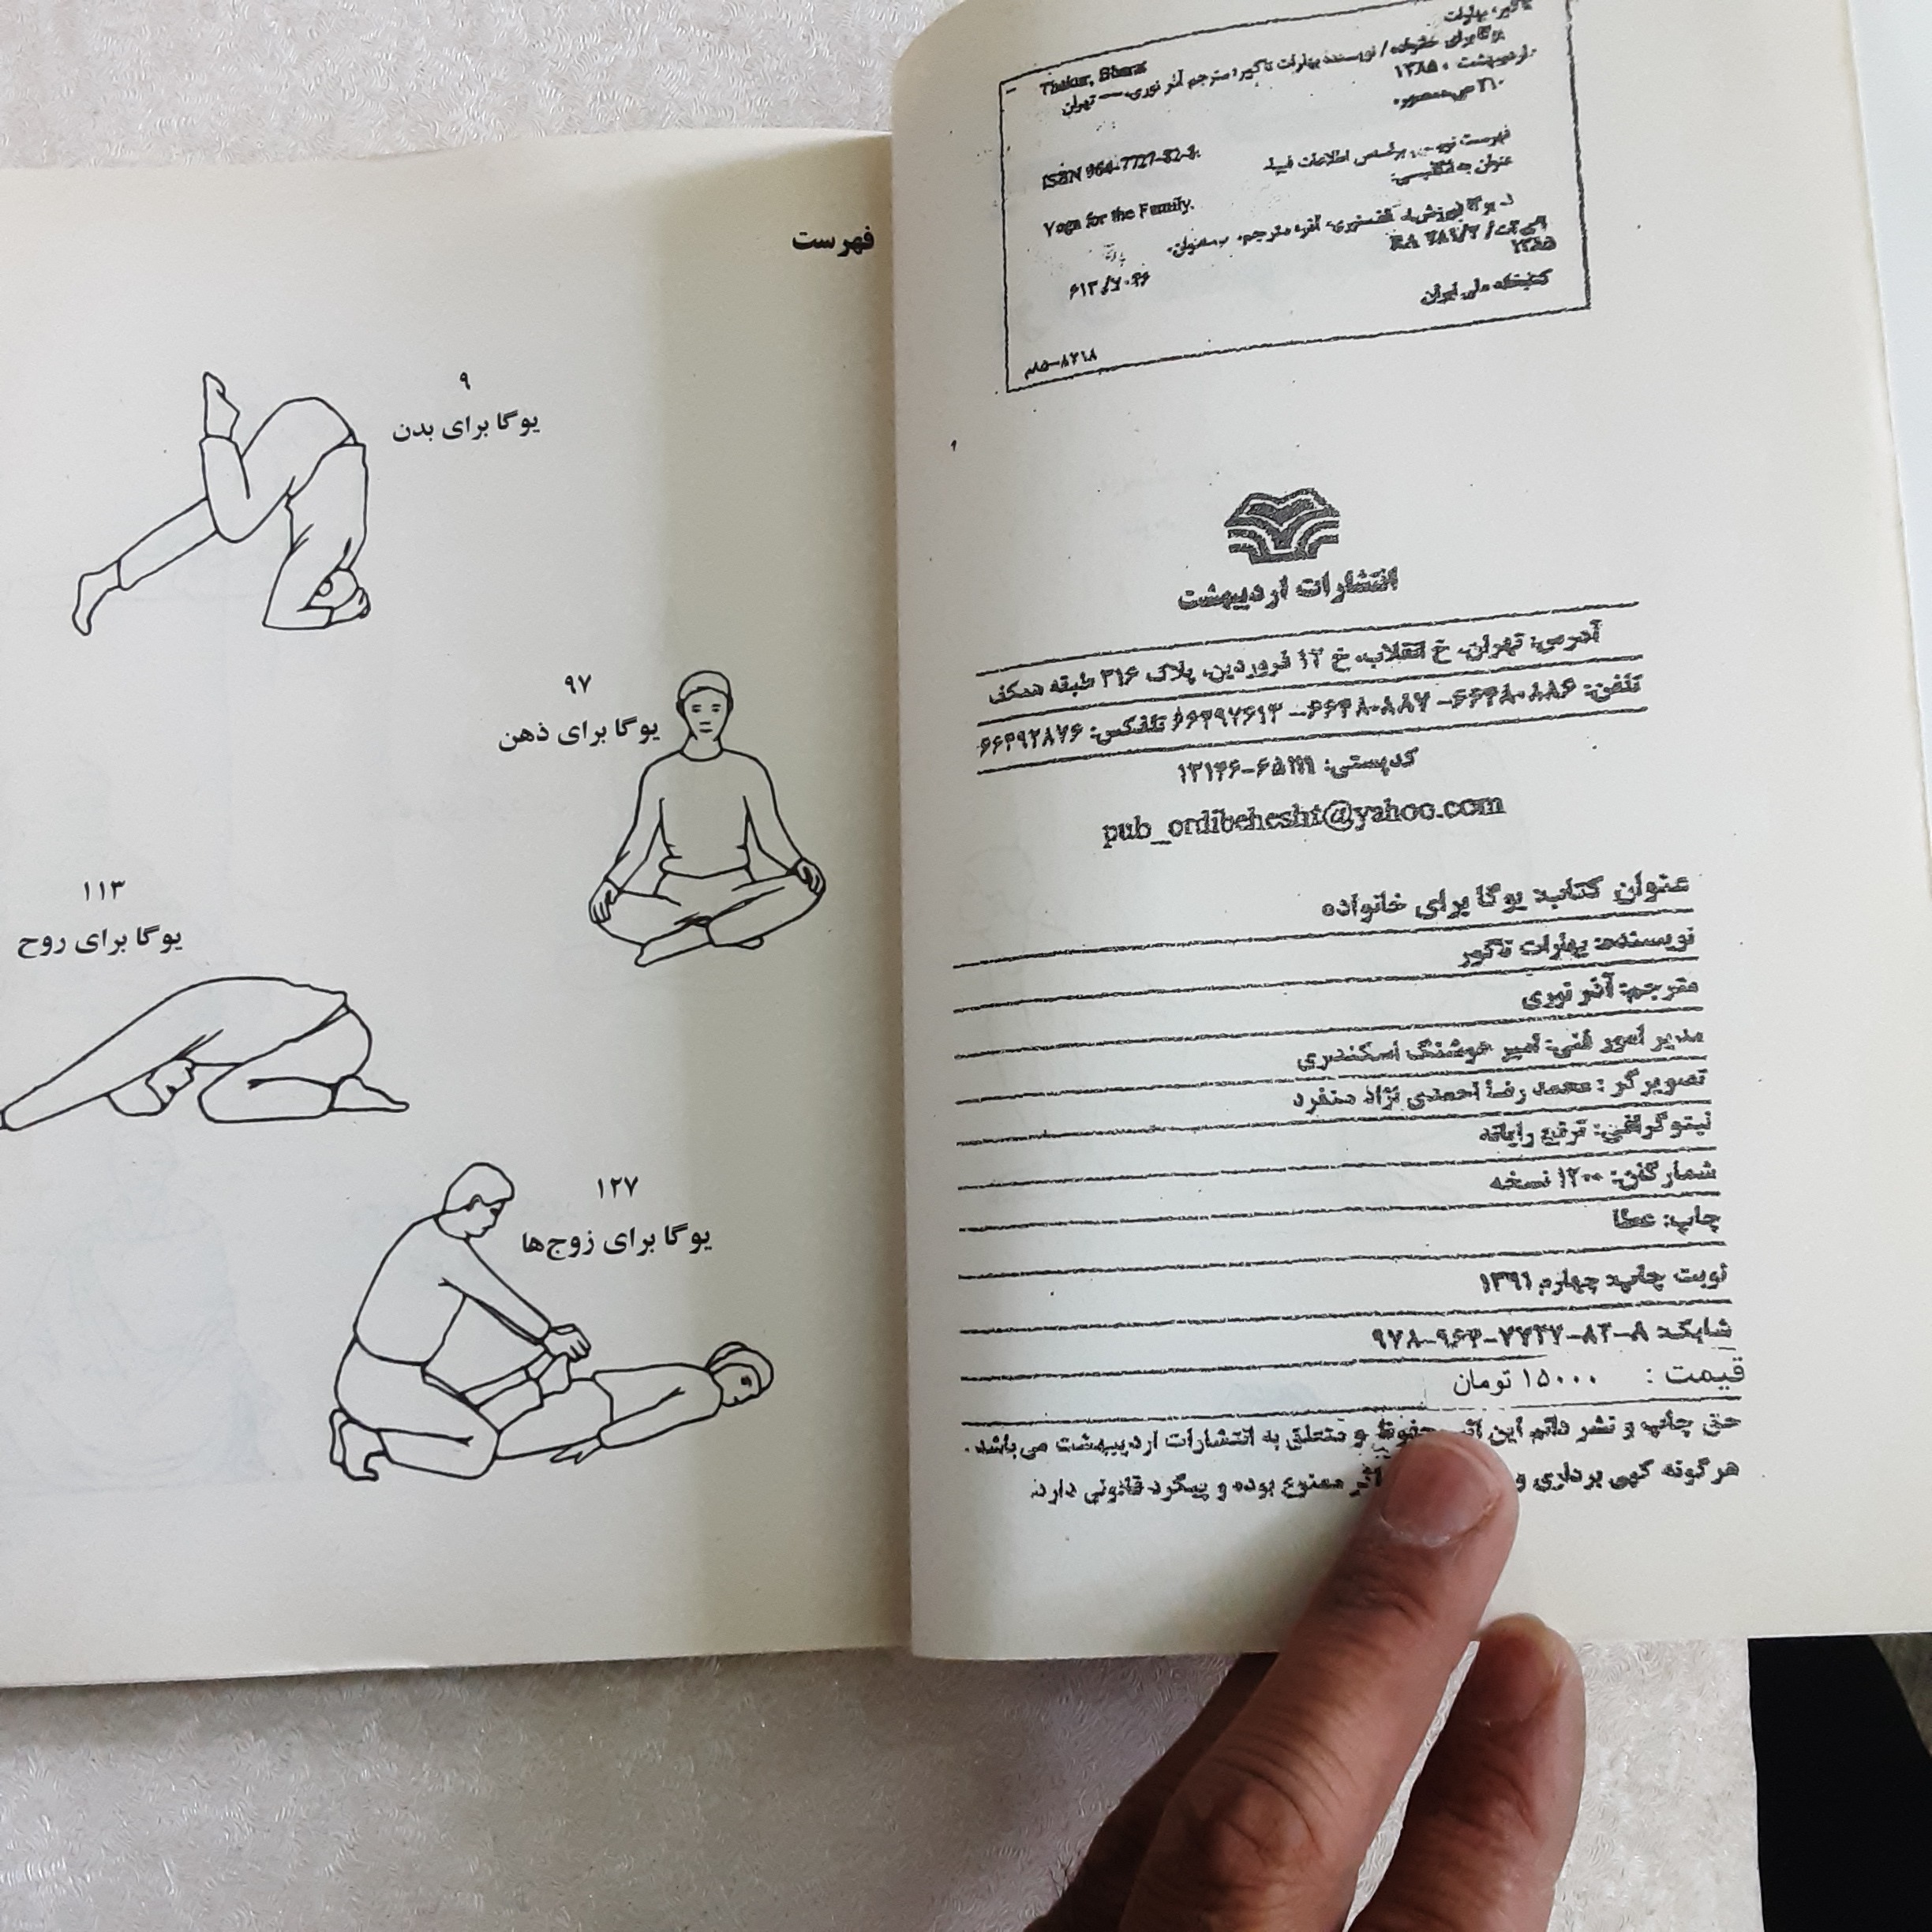 تاگیر، بهارات
Thakur, Bharat
یوگا برای خانواده / نویسنده بهارات تاگیر؛ مترجم آذر نوری. — تهران
اردیبهشت، ۱۳۸۵
۲۱۰ ص. مصور.
ISBN 964-7727-82-8
فهرست نویسی براساس اطلاعات فیپا.
عنوان به انگلیسی:
Yoga for the Family.
مترجم. ب. عنوان.
RA ۷۸۱/۷
۱۳۸۵
۶۱۳/۷۰۴۶
کتابخانه ملی ایران
انتشارات اردیبهشت
آدرس: تهران، خ انقلاب، خ ۱۲ فروردین، پلاک ۳۱۶ طبقه همکف
تلفن: ۶۶۴۸۰۸۸۶- ۶۶۴۸۰۸۸۷- ۶۶۴۹۷۶۱۳ تلفکس: ۶۶۴۹۲۸۷۶
کدپستی:
pub_ordibehesht@yahoo.com
عنوان کتاب: یوگا برای خانواده
نویسنده: بهارات تاگور
مترجم: آذر نوری
مدیر امور فنی: امیر هوشنگ اسکندری
تصویرگر : محمد رضا احمدی نژاد منفرد
لیتوگرافی: ترنج رایانه
شمارگان: ۱۲۰۰ نسخه
چاپ: عطا
نوبت چاپ: چهارم ۱۳۹۱
شابک: ۸-۸۲-۷۷۲۷-۹۶۴-۹۷۸
قیمت : ۱۵۰۰۰ تومان
حق چاپ و نشر دائم این اثر محفوظ و متعلق به انتشارات اردیبهشت می‌باشد.
هرگونه کپی برداری و اثر ممنوع بوده و پیگرد قانونی دارد
فهرست
۹
یوگا برای بدن
۹۷
یوگا برای ذهن
۱۱۳
یوگا برای روح
۱۲۷
یوگا برای زوج‌ها